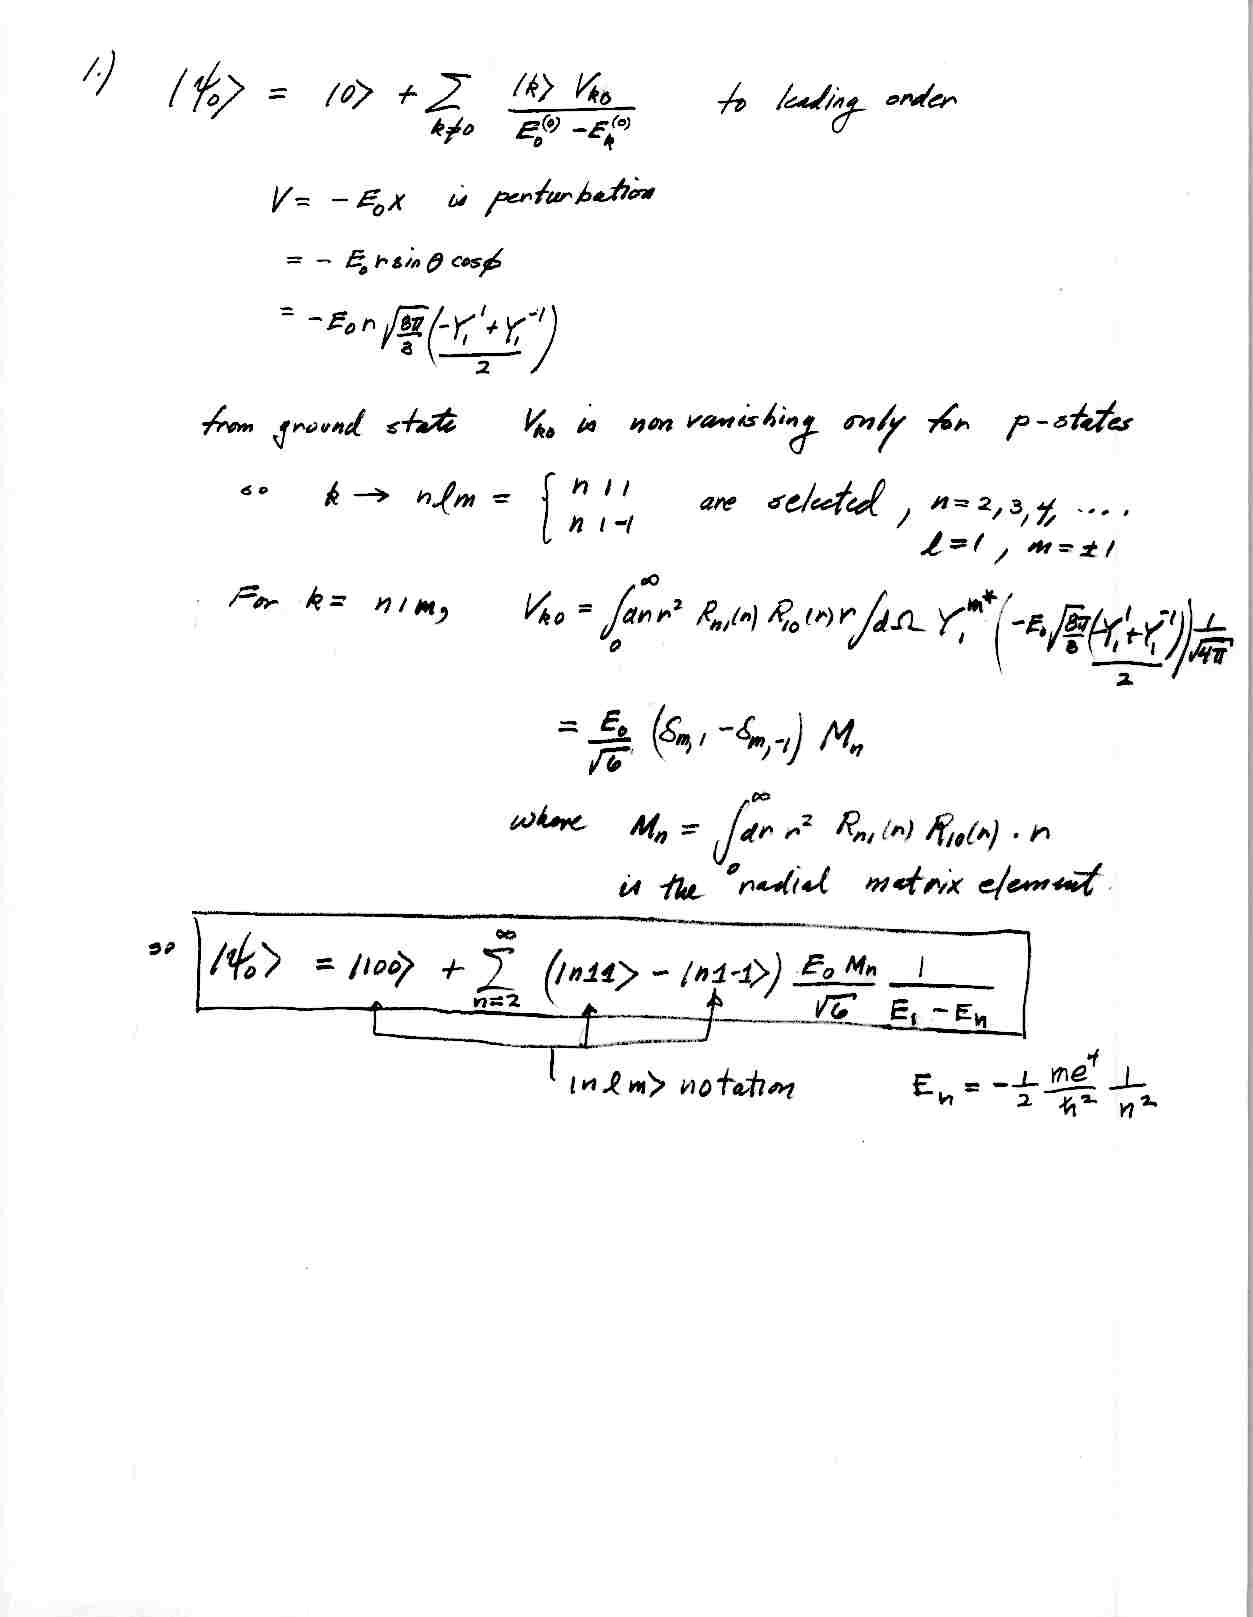 1.) |ψ₀⟩ = |0⟩ + Σ_{k≠0} |k⟩ V_{k0} / (E₀^{(0)} − E_k^{(0)}) to leading order
V = − E₀x is perturbation
= − E₀ r sin θ cos ϕ
= − E₀ r √(8π/3) ((−Y₁¹ + Y₁⁻¹)/2)
from ground state V_{k0} is non vanishing only for p-states
so k → nlm = { n 1 1 are selected, n = 2, 3, 4, ....
n 1 -1 l = 1, m = ±1
For k = n1m, V_{k0} = ∫₀^∞ dr r² R_{n1}(r) R_{10}(r) r ∫dΩ Y₁^{m*} (−E₀ √(8π/3) (−Y₁¹ + Y₁⁻¹)/2) 1/√4π
= E₀/√6 (δ_{m,1} − δ_{m,-1}) M_n
where M_n = ∫₀^∞ dr r² R_{n1}(r) R_{10}(r) · r
is the radial matrix element.
so |ψ₀⟩ = |100⟩ + Σ_{n=2}^∞ (|n11⟩ − |n1-1⟩) E₀ M_n/√6 1/(E₁ − E_n)
|n l m⟩ notation E_n = −1/2 me⁴/ħ² 1/n²